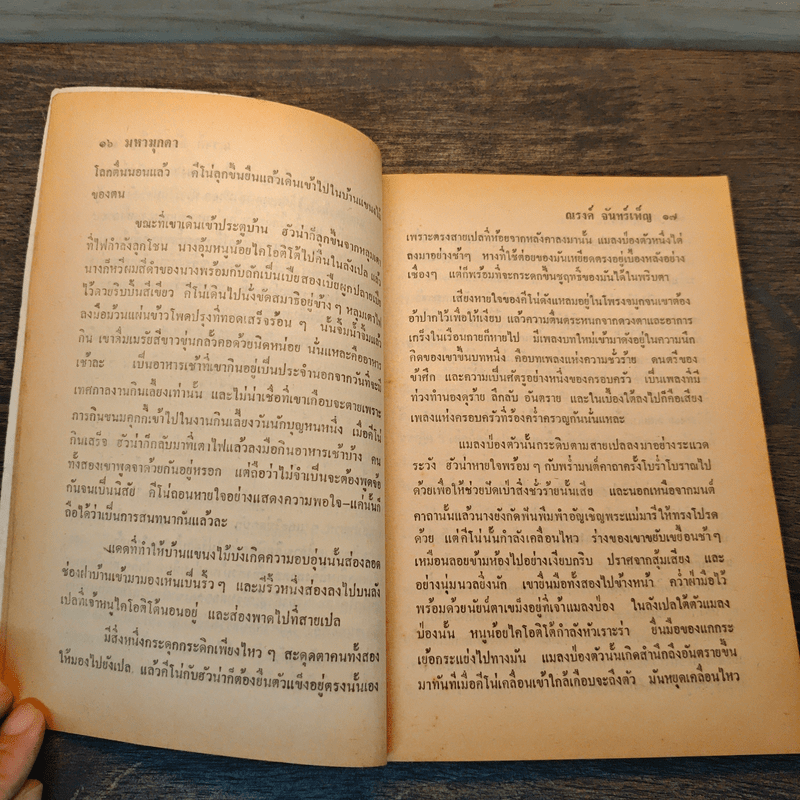 ๑๖ มหามุกดา
โลกตื่นนอนแล้ว คีโน่ลุกขึ้นยืนแล้วเดินเข้าไปในบ้านแขนงไม้
ของตน
ขณะที่เขาเดินเข้าประตูบ้าน ฮัวน่าก็ลุกขึ้นจากหลุมเตา
ที่ไฟกำลังลุกโชน นางอุ้มหนูน้อยไคโอติโต้ไปคืนในลังเปล แล้ว
นางก็หวีผมสีดำของนางพร้อมกับถักเป็นเปียสองเปียผูกปลายเปีย
ไว้ด้วยริบบิ้นสีเขียว คีโน่เดินไปนั่งขัดสมาธิอยู่ข้าง ๆ หลุมเตาไฟ
ลงมือม้วนแผ่นข้าวโพดปรุงที่ทอดเสร็จร้อน ๆ นั้นจิ้มน้ำจิ้มแล้ว
กิน เขาดื่มเมรัยสีขาวขุ่นกลั้วคอด้วยนิดหน่อย นั่นแหละคืออาหาร
เช้าละ เป็นอาหารเช้าที่เขากินอยู่เป็นประจำนอกจากวันที่จะมี
เทศกาลงานกินเลี้ยงเท่านั้น และไม่น่าเชื่อที่เขาเกือบจะตายเพราะ
การกินขนมคุกกี้เข้าไปในงานกินเลี้ยงวันนักบุญหนหนึ่ง เมื่อคีโน่
กินเสร็จ ฮัวน่าก็กลับมาที่เตาไฟแล้วลงมือกินอาหารเช้าบ้าง คน
ทั้งสองเขาพูดจาด้วยกันอยู่หรอก แต่ถือว่าไม่จำเป็นจะต้องพูดจ้อ
กันจนเป็นนิสัย คีโน่ถอนหายใจอย่างแสดงความพอใจ–แค่นั้นก็
ถือได้ว่าเป็นการสนทนากันแล้วละ
แดดที่ทำให้บ้านแขนงไม้บังเกิดความอบอุ่นนั้นส่องลอด
ช่องฝาบ้านเข้ามามองเห็นเป็นริ้ว ๆ และมีริ้วหนึ่งส่องลงไปบนลัง
เปลที่เจ้าหนูไคโอติโต้นอนอยู่ และส่องพาดไปที่สายเปล
มีสิ่งหนึ่งกระตุกกระติกเพียงไหว ๆ สะดุดตาคนทั้งสอง
ให้มองไปยังเปล แล้วคีโน่กับฮัวน่าก็ต้องยืนตัวแข็งอยู่ตรงนั้นเอง
ณรงค์ จันทร์เพ็ญ ๑๗
เพราะตรงสายเปลที่ห้อยจากหลังคาลงมานั้น แมลงป่องตัวหนึ่งไต่
ลงมาอย่างช้าๆ หางที่ใช้ต่อยของมันเหยียดตรงอยู่เบื้องหลังอย่าง
เชื่องๆ แต่ก็พร้อมที่จะกระดกขึ้นชูฤทธิ์ของมันได้ในพริบตา
เสียงหายใจของคีโน่ดังแหลมอยู่ในโพรงจมูกจนเขาต้อง
อ้าปากไว้เพื่อให้เงียบ แล้วความตื่นตระหนกจากดวงตาและอาการ
เกร็งในเรือนกายก็หายไป มีเพลงบทใหม่เข้ามาดังอยู่ในความนึก
คิดของเขาขึ้นบทหนึ่ง คือบทเพลงแห่งความชั่วร้าย ดนตรีของ
ข้าศึก และความเป็นศัตรูอย่างหนึ่งของครอบครัว เป็นเพลงที่มี
ท่วงทำนองดุร้าย ลึกลับ อันตราย และในเบื้องใต้ลงไปก็คือเสียง
เพลงแห่งครอบครัวที่ร้องคร่ำครวญกันนั่นแหละ
แมลงป่องตัวนั้นกระดิบตามสายเปลลงมาอย่างระแวด
ระวัง ฮัวน่าหายใจพร้อม ๆ กับพร่ำมนต์คาถาครั้งโบร่ำโบราณไป
ด้วยเพื่อให้ช่วยปัดเป่าสิ่งชั่วร้ายนั้นเสีย และนอกเหนือจากมนต์
คาถานั้นแล้วนางยังกัดฟันพึมพำอัญเชิญพระแม่มารีให้ทรงโปรด
ด้วย แต่คีโน่นั้นกำลังเคลื่อนไหว ร่างของเขาขยับเขยื้อนช้าๆ
เหมือนลอยข้ามห้องไปอย่างเงียบกริบ ปราศจากสุ้มเสียง และ
อย่างนุ่มนวลยิ่งนัก เขายื่นมือทั้งสองไปข้างหน้า คว่ำฝ่ามือไว้
พร้อมด้วยนัยน์ตาเขม็งอยู่ที่เจ้าแมลงป่อง ในลังเปลใต้ตัวแมลง
ป่องนั้น หนูน้อยไคโอติโต้กำลังหัวเราะร่า ยื่นมือของแกกระ
เย้อกระแย่งไปทางมัน แมลงป่องตัวนั้นเกิดสำนึกถึงอันตรายขึ้น
มาทันทีเมื่อคีโน่เคลื่อนเข้าใกล้เกือบจะถึงตัว มันหยุดเคลื่อนไหว